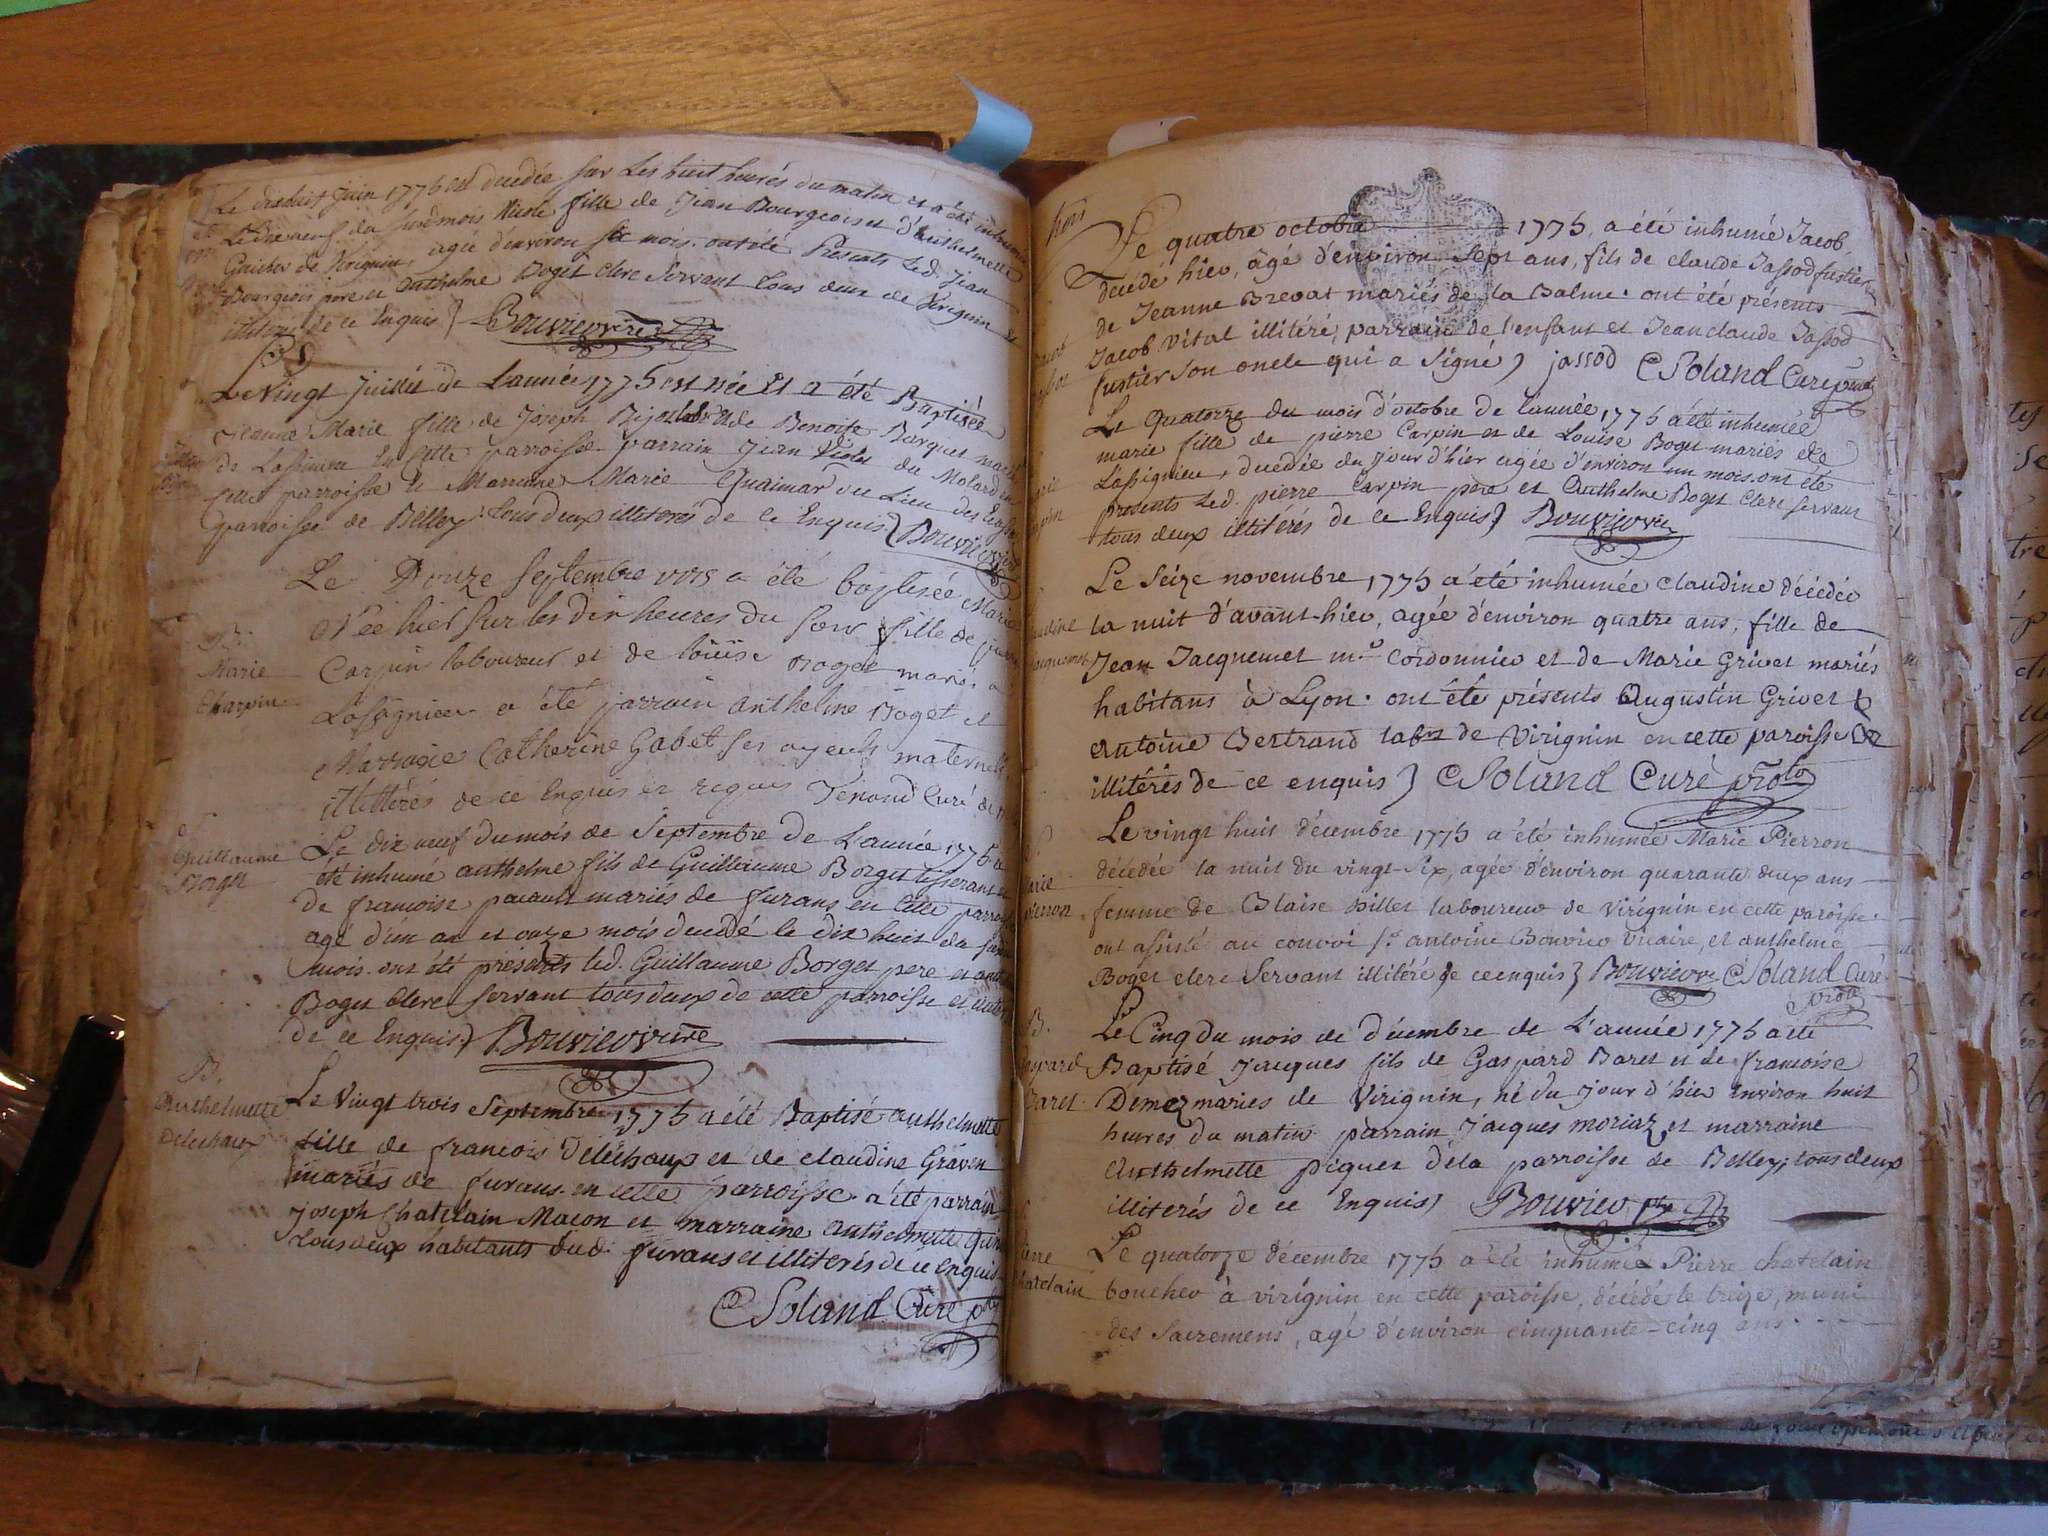 Le dixhuit Juin 1775 est decedée sur Les huit heurés du matin et a été inhumée
Le dix neuf du susd mois fille de Jean Bourgeois et d'anthelmette
de Virignin, agée d'environ six mois. ont été Présents Led. Jean
Bourgeois pere et anthelme Boget clerc Servant tous deux de Virignin &
illiterés de ce Enquis} Bouvier vicre
Le Vingt Juillet de L'année 1775 est née Et a été Baptisée
Jeanne Marie fille de Joseph et de Benoite Barquet mariés
de Lassignieu En cette parroisse parrain Jean du Molard en
cette parroisse et Marraine Marie du Lieu des
parroisse de Belley. tous deux illiterés de ce Enquis} Bouvier vicre
Le Douze Septembre 1775 a été baptisée Marie
Née hier sur les dix heures du soir fille de pierre
Carpin laboureur et de loüise Boget mariés a
Lassignieu a été parrain anthelme Boget et
Marraine Catherine Gabet ses ayeuls maternels
illittérés de ce Enquis et requis Tenand Curé de
B.
Marie
Charpin
Guillaume
Borget
Le dix neuf du mois de Septembre de L'année 1775 a
été inhumé anthelme fils de Guillaume Borget tisserant et
de francoise mariés de furans en cette parroisse
agé d'un an et onze mois decedé le dix huit du susd
mois. ont été presents led. Guillaume Borget pere et anth
Boget Clerc servant tous deux de cette parroisse et illiter
de ce Enquis} Bouvier vicre
B.
Anthelmette
Delechaux
Le Vingt trois Septembre 1775 a été Baptisé anthelmette
fille de francois Deléchaup et de claudine Graven
mariés de furans en cette parroisse a été parrain
Joseph Chatelain Macon et marraine anthelmette
tous deux habitants dud. furans et illiterés de ce enquis
Soland Curé pto
Le quatre octobre 1775, a été inhumé Jacob
decedé hier, âgé d'environ Sept ans, fils de claude Jassod fustier &
de Jeanne Brevat mariés de la Balme. ont été présents
Jacob Vital illitéré, parrain de l'enfant et Jean claude Jassod
fustier son oncle qui a signé} jassod Soland Curé proto
Le Quatorze du mois d'octobre de L'année 1775 a été inhumée
marie fille de pierre Carpin et de Louise Boget mariés de
Lassignieu, decedée du Jour d'hier agée d'environ un mois. ont été
presents Led. pierre Carpin pere et Anthelme Boget Clerc servant
tous deux illiterés de ce Enquis} Bouvier vic
Le Seize novembre 1775 a été inhumée Claudine décédée
la nuit d'avant-hier, agée d'environ quatre ans, fille de
Jean Jacquemet me cordonnier et de Marie Grivet mariés
habitans à Lyon. ont été présents Augustin Grivet &
Antoine Bertrand labr de Virignin en cette paroisse
illitérés de ce enquis} Soland Curé proto
Le vingt huit décembre 1775 a été inhumée Marie Pierron
décédée la nuit du vingt-six, agée d'environ quarante deux ans
femme de Blaise Billet laboureur de Virignin en cette paroisse.
ont assisté au convoi Sr antoine Bouvier vicaire, et anthelme
Boget clerc Servant illitéré de ce enquis} Bouvier vic Soland Curé
proto
B.
Gaspard
Baret
Le Cinq du mois de Décembre de L'année 1775 a été
Baptisé Jacques fils de Gaspard Baret et de francoise
Demoz mariés de Virignin, né du Jour d'hier Environ huit
heures du matin parrain Jacques moriaz et marraine
Anthelmette piquet dela parroisse de Belley; tous deux
illiterés de ce Enquis} Bouvier ptre
Pierre
Chatelain
Le quatorze décembre 1775 a été inhumé Pierre Chatelain
boucher à virignin en cette paroisse, décédé le treize, muni
des Sacremens, agé d'environ cinquante-cinq ans.